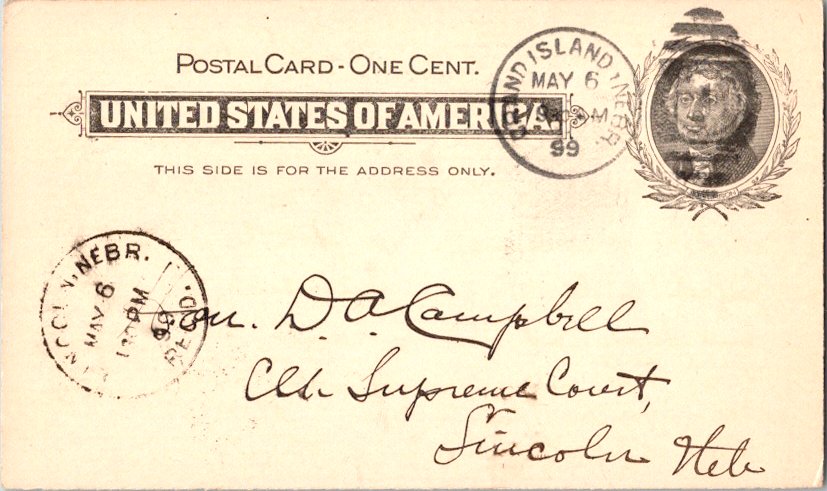 POSTAL CARD - ONE CENT.
UNITED STATES OF AMERICA.
THIS SIDE IS FOR THE ADDRESS ONLY.
GRAND ISLAND, NEBR.
MAY 6
M
99
LINCOLN, NEBR.
MAY 6
PM
99
REC'D.
Hon. D. A. Campbell
Clk. Supreme Court,
Lincoln Neb